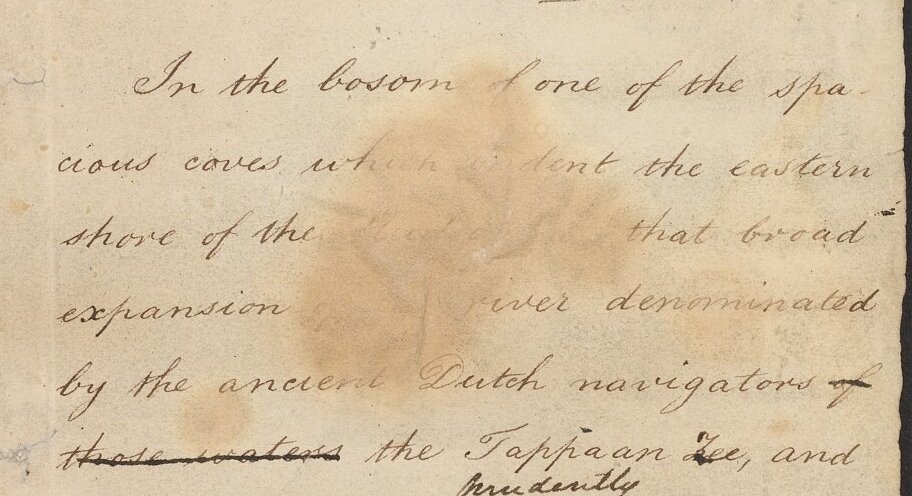 In the bosom of one of the spa-
cious coves which indent the eastern
shore of the that broad
expansion river denominated
by the ancient Dutch navigators of
those waters the Tappaan Zee, and
prudently